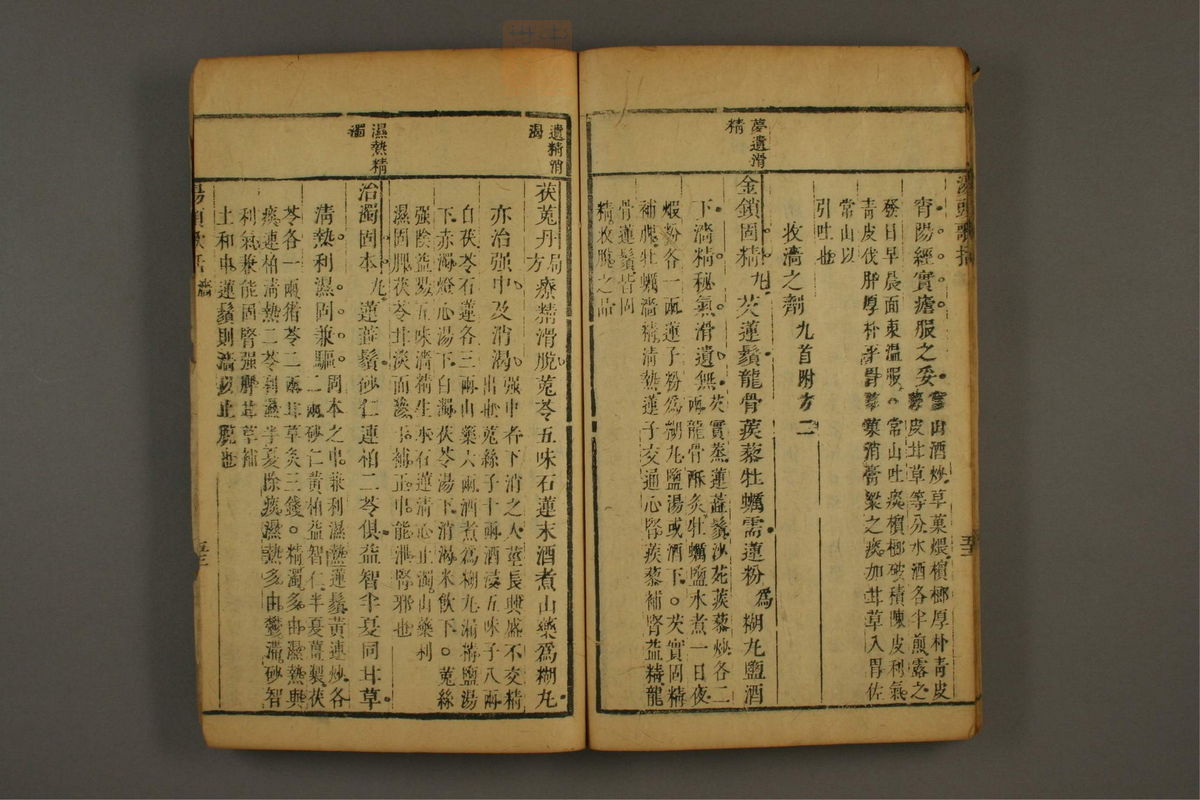 湯頭歌括
宵陽經實瘧服之妥常山酒炒草菓煨檳榔厚朴青皮
皮甘草等分水酒各半煎露之
發日早晨面東溫服○常山吐痰檳榔破積陳皮利氣
青皮伐肝厚朴平胃草菓消膏粱之痰加甘草入胃佐
常山以
引吐也
收濇之劑九首附方二
夢遺滑
精
金鎖固精丸芡蓮鬚龍骨蒺藜牡蠣需蓮粉爲糊丸鹽酒
下濇精秘氣滑遺無芡實蒸蓮蕊鬚沙苑蒺藜炒各二
兩龍骨酥灸牡蠣鹽水煮一日夜
煅粉各一兩蓮子粉爲糊丸鹽湯或酒下○芡實固精
補脾牡蠣濇精清熱蓮子交通心腎蒺藜補腎益精龍
骨蓮鬚皆固
精收脫之品
遺精消
渴
茯菟丹局方療精滑脫菟苓五味石蓮末酒煮山藥爲糊丸
亦治强中及消渴强中者下消之人莖長興盛不交精
出也菟絲子十兩酒浸五味子八兩
白茯苓石蓮各三兩山藥六兩酒煮爲糊丸漏精鹽湯
下赤濁燈心湯下白濁茯苓湯下消渴米飲下○菟絲
强陰益陽五味濇精生水石蓮清心止濁山藥利
濕固脾茯苓甘淡而滲于補正中能泄腎邪也
濕熱精
濁
治濁固本丸蓮蕊鬚砂仁連柏二苓俱益智半夏同甘草
清熱利濕固兼驅固本之中兼利濕熱蓮鬚黃連炒各
二兩砂仁黃柏益智仁半夏薑製茯
苓各一兩猪苓二兩甘草灸三錢○精濁多由濕熱與
痰連柏清熱二苓利濕半夏除痰濕熱多由鬱滯砂智
利氣兼能固腎强脾甘草補
土和中蓮鬚則濇以止脫也
湯頭歌括
濇